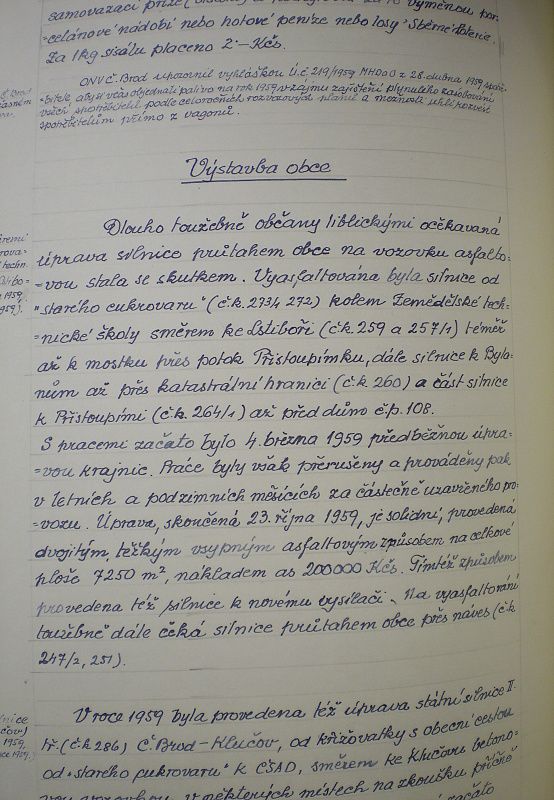 samovazací
celánové nádobí nebo hotové peníze nebo losy "Sběrné loterie.
Za 1 kg sisálu placeno 2.- Kčs.
ONV Č. Brod upozornil vyhláškou Ú.č. 219/1959 z 28. dubna 1959
=bitele, aby si včas objednali palivo na rok 1959 v zájmu zajištění plynulého zásobování
všech spotřebitelů podle celoročních rozvozových plánů a možnosti uhlí rozvést
spotřebitelům přímo z vagonů.
Výstavba obce
Dlouho toužebně občany liblickými očekávaná
úprava silnice průtahem obce na vozovku asfalto=
=vou stala se skutkem. Vyasfaltována byla silnice od
"starého cukrovaru" (č.k. 273 a 272) kolem Zemědělské tech=
=nické školy směrem ke Lstiboři (č.k. 259 a 257/1) téměř
až k mostku přes potok Přistoupimku, dále silnice k Byla=
nům až přes katastrální hranici (č.k. 260) a část silnice
k Přistoupimi (č.k. 264/1) až před dům č.p. 108.
S pracemi začato bylo 4. března 1959 předběžnou úpra=
=vou krajnic. Práce byly však přerušeny a prováděny pak
v letních a podzimních měsících za částečně uzavřeného pro=
=vozu. Úprava, skončená 23. října 1959, je solidní, provedená
dvojitým, těžkým vsypným asfaltovým způsobem na celkové
ploše 7250 m², nákladem as 200000 Kčs. Tímtéž způsobem
provedena též silnice k novému vysílači. Na vyasfaltování
toužebně dále čeká silnice průtahem obce přes náves (č.k.
247/2, 251).
V roce 1959 byla provedena též úprava státní silnice II.
tř. (č.k. 286) Č. Brod - Klučov, od křižovatky s obecní cestou
od "starého cukrovaru" k ČSAD, směrem ke Klučovu betono=
vou vozovkou, v některých místech na zkoušku příčně
začato